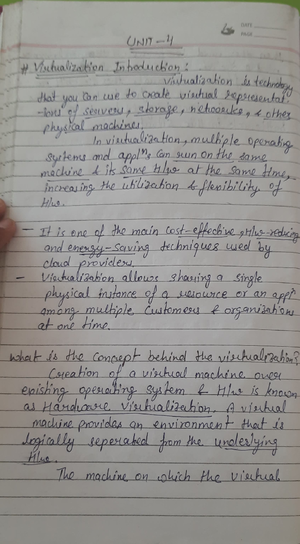 DATE
PAGE
UNIT-4
# Virtualization Introduction:
Virtualization is technology
that you can use to create virtual represental
-ions of servers, storage, networks, & other
physical machines.
In virtualization, multiple operating
systems and applns can run on the same
machine & its same H/w at the same time,
increasing the utilization & flexibility of
H/w.
- It is one of the main cost-effective, H/w-reducing
and energy-saving techniques used by
cloud providers.
- Virtualization allows sharing a single
physical instance of a resource or an appln
among multiple customers & organizations
at one time.
What is the concept behind the virtualization?
Creation of a virtual machine over
existing operating system & H/w is known
as Hardware Virtualization. A virtual
machine provides an environment that is
logically seperated from the underlying
H/w.
The machine on which the virtual